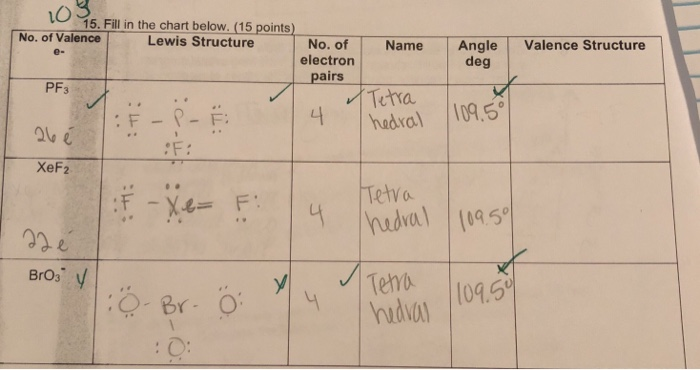 103
15. Fill in the chart below. (15 points)
No. of Valence e- Lewis Structure No. of electron pairs Name Angle deg Valence Structure
PF₃
26 e⁻
:F - P - F:
:F:
4
Tetra
hedral
109.5°
XeF₂
22 e⁻
:F - Xe = F:
4
Tetra
hedral
109.5°
BrO₃⁻
:O - Br - O:
:O:
4
Tetra
hedral
109.5°